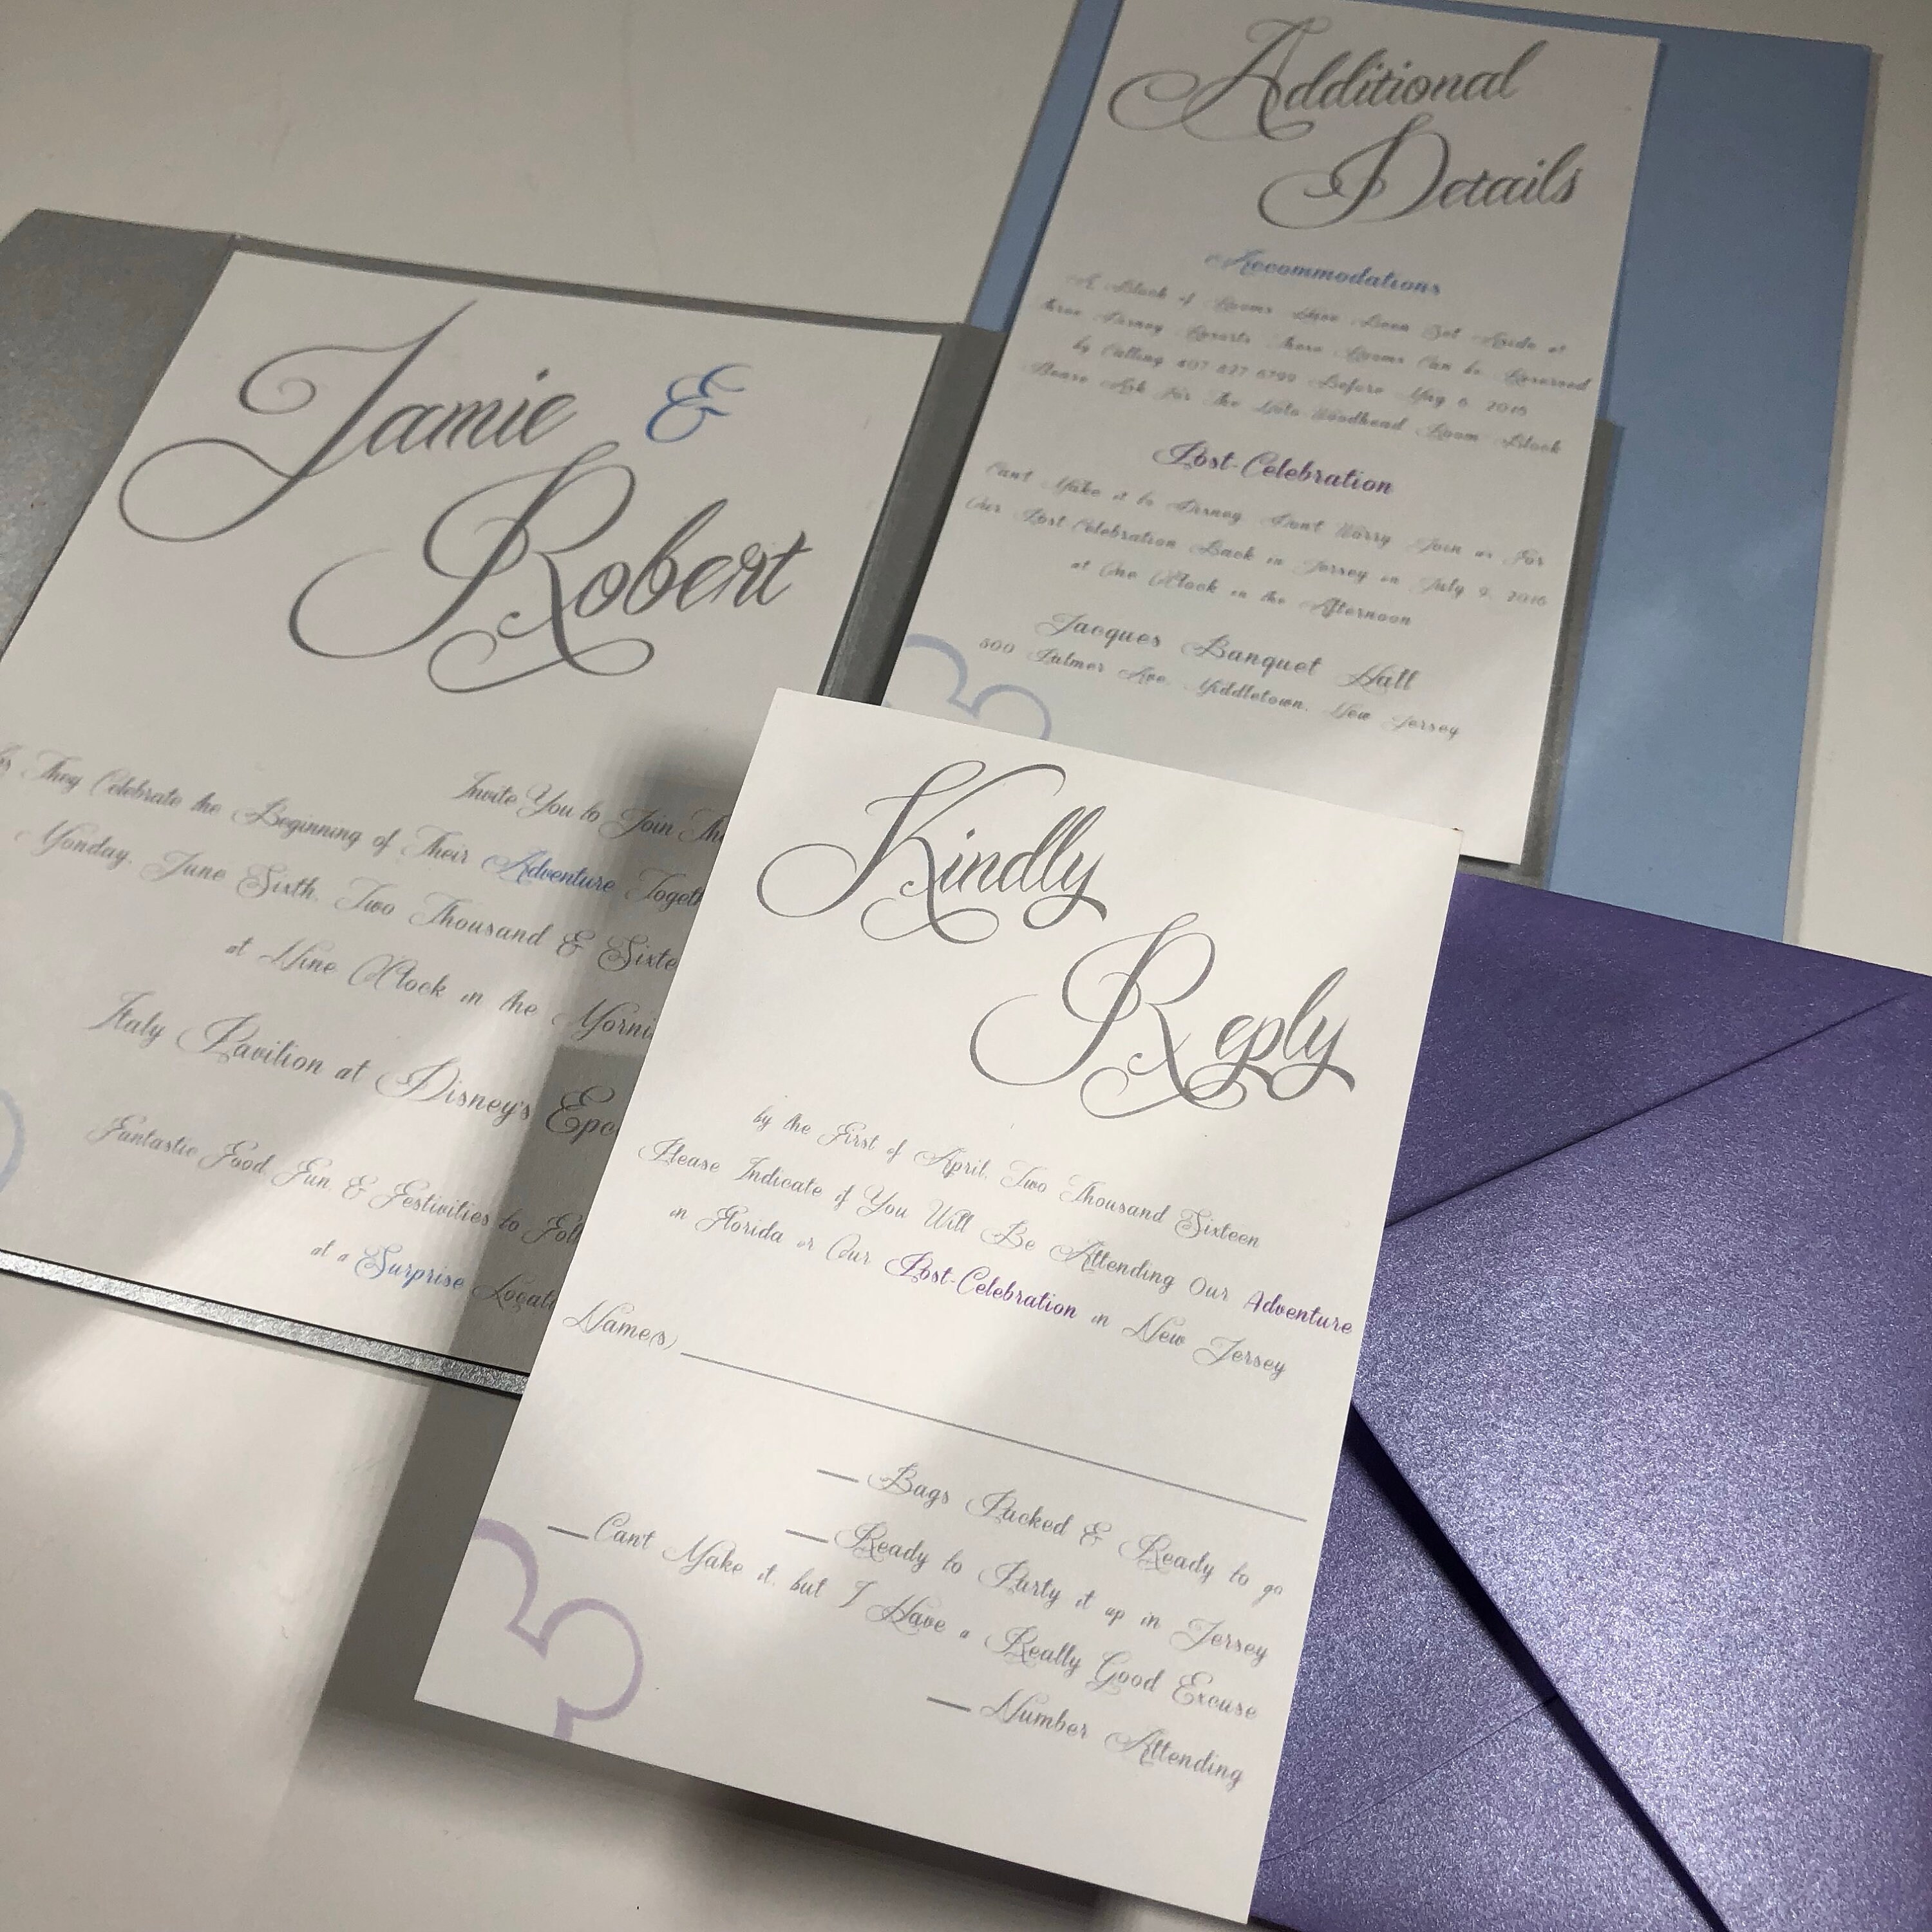 Jamie &
Robert
Invite You to Join Th
They Celebrate the Beginning of Their Adventure Togeth
Monday, June Sixth, Two Thousand & Sixte
at Nine O'Clock in the Morni
Italy Pavilion at Disney's Epc
Fantastic Food, Fun, & Festivities to Foll
at a Surprise Locati
Additional
Details
Accommodations
A Block of Rooms Have Been Set Aside at
three Disney Resorts These Rooms Can be Reserved
by Calling 407 827 6799 Before May 6, 2016
Please Ask For The Woodhead Room Block
Post-Celebration
Can't Make it to Disney Don't Worry Join us For
Our Post Celebration Back in Jersey on July 9, 2016
at One O'Clock in the Afternoon
Jacques Banquet Hall
500 Palmer Ave, Middletown, New Jersey
Kindly
Reply
by the First of April, Two Thousand Sixteen
Please Indicate if You Will Be Attending Our Adventure
in Florida or Our Post-Celebration in New Jersey
Name(s)
Bags Packed & Ready to go
Ready to Party it up in Jersey
Can't Make it, but I Have a Really Good Excuse
Number Attending